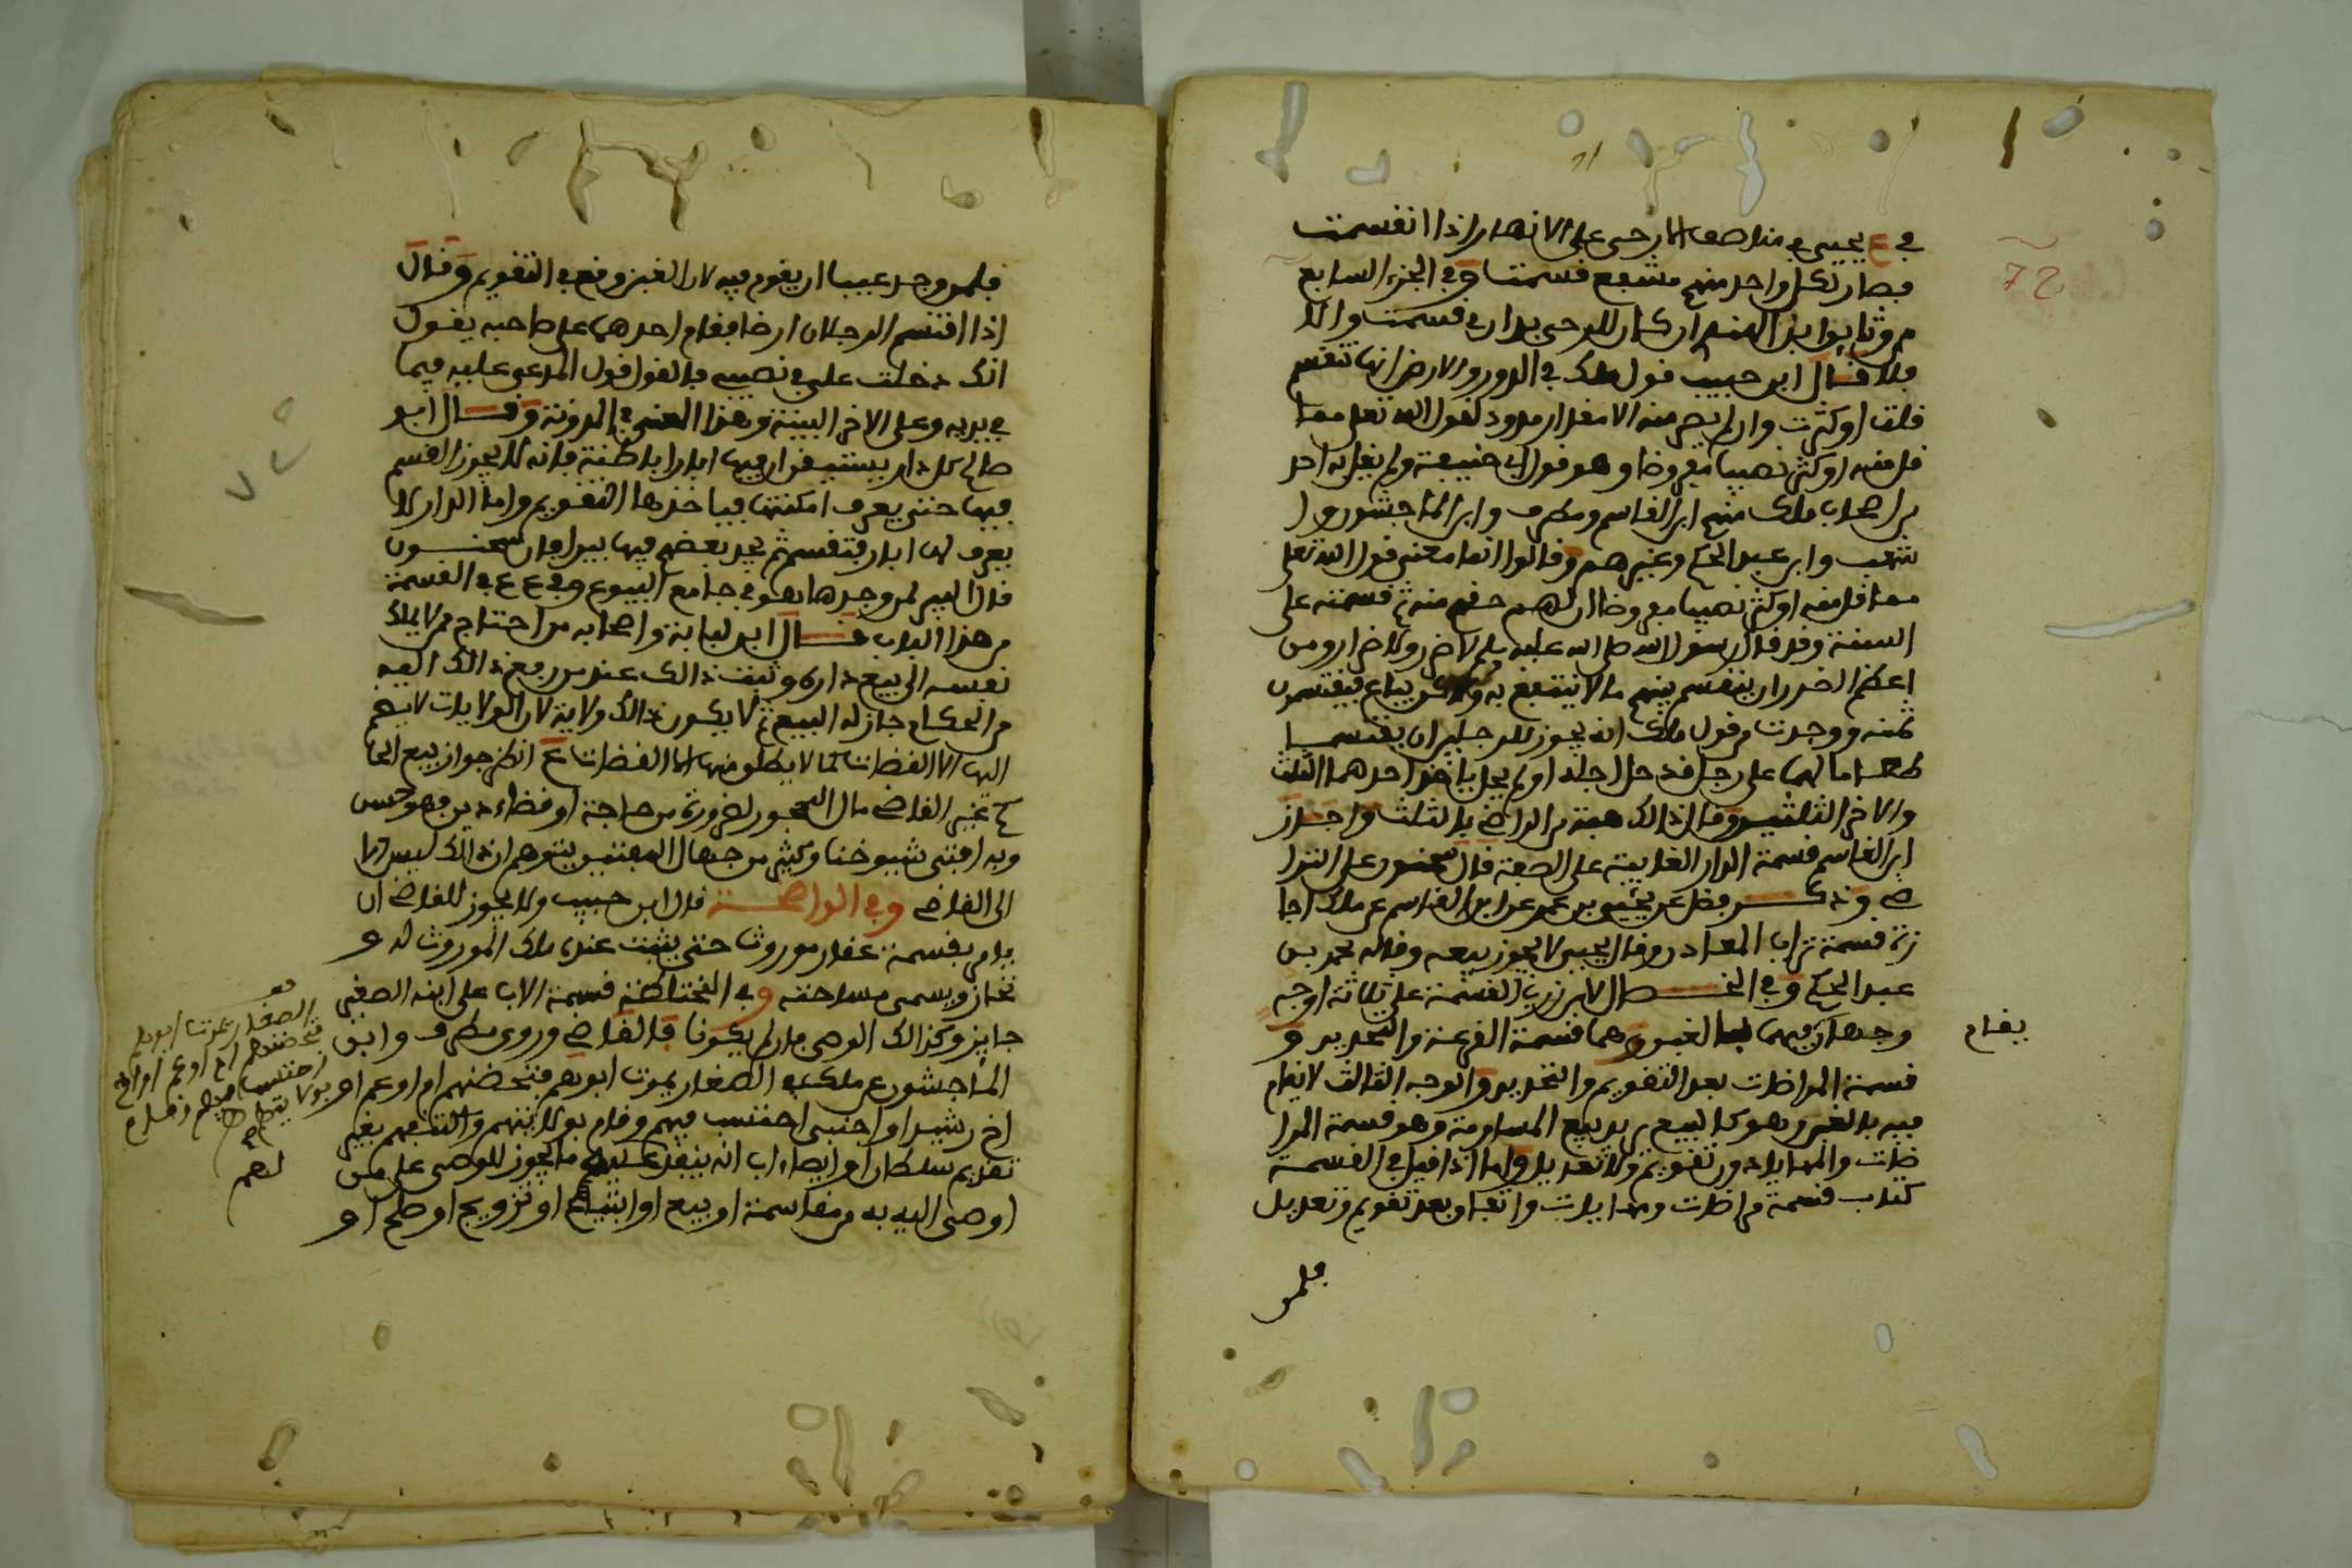 في ع يحيى في مناصب الارحى على الانهار اذا انقسمت
فصار لكل واحد منهم منتفع قسمت وفي الجزء السابع
من وثايق ابن الهندي ان كان للرحى بدان قسمت والا
فلا قال ابن حبيب قول ملك في الدور والارض انها تقسم
قلت او كثرت وان لم يصر منه الا مقدار مدود لقول الله تعلى مما
قل منه او كثر نصيبا مفروضا وهو قول ابي حنيفة ولم يقل به احد
من اصحاب ملك منهم ابن القاسم ومطرف وابن الماجشون وا
شهب وابن عبد الحكم وغيرهم وقالوا انما معنى قول الله تعلى
مما قل منه او كثر نصيبا مفروضا ان لهم حقهم منه ثم قسمته على
السنة وقد قال رسول الله صلى الله عليه وسلم لا ضرر ولا ضرار ومن
اعظم الضرر ان ينقسم بينهم ما لا ينتفع به ولاكن يباع فيقتسمون
ثمنه ووجدت من قول ملك انه يجوز للرجلين ان يقتسما
طعاما لهما على رجل قد حل اجله او لم يحل ياخذ احدهما الثلث
والاخر الثلثين وقال ذالك هبة من الراضي بالثلث واجاز
ابن القاسم قسمة الدار الغايبة على الصفة قال سحنون على الترا
ضي وذكر فضل عن يحيى بن عمر عن ابن القاسم عن ملك اجا
زة قسمة تراب المعادن وقال يحيى لا يجوز بيعه وقاله محمد بن
عبد الحكم وفي الخصال لابن زرب القسمة على ثلاثة اوجه
وجهان فيهما الغبن وهما قسمة القرعة والتعديل و
قسمة المراضات بعد التقويم والتعديل والوجه الثالث لا يقام
فيه بالغبن وهو كالبيع يريد بيع المساومة وهو قسمة المرا
ضات والمهاياة دون تقويم ولا تعديل واما اذا قيل في القسمة
كتاب قسمة مراضات ومهايات واتفاق بعد تقويم وتعديل
يقام
فلمن
فلمن وجد عيبا ان يقوم فيه لان الغبن وقع في التقويم وقال
اذا اقتسم الرجلان ارضا فقام احدهما على صاحبه يقول
انك دخلت علي في نصيبي فالقول قول المدعى عليه فيما
في يديه وعلى الاخر البينة وهذا المعنى في المدونة وقال ابو
صالح كل دار يستيقن ان فيها ابارا باطنة فانه لا يجوز القسم
فيها حتى يعرف امكنتها فياخذها التقويم واما الدار لا
يعرف لها ابار فتقسم ثم يجد بعضهم فيها بيرا فان سحنون
قال البير لمن وجدها بقو في جامع البيوع وفي ع ع في القسمة
من هذا الباب قال ابن لبابة واصحابه من احتاج ممن لا يملك
نفسه الى بيع داره وثبت ذالك عند من رفع ذالك اليه
من الحكام جاز له البيع ثم لا يكون ذالك ولاية لان الولايات لا يضم
اليها الا القضات كما لا يطلق منها الا القضات ع انظر جواز بيع الحا
كم غير القاضي مال المحجور لضرورة من حاجة او قضاء دين فهو حسن
وبه افتى شيوخنا وكثير من جهال المفتين يتوهم ان ذالك ليس الا
الى القاضي وفي الواضحة قال ابن حبيب ولا يجوز للقاضي ان
يامر بقسمة عقار موروث حتى يثبت عنده ملك الموروث له و
تحاز ويسمى مساحته وفي المختلطة قسمة الاب على ابنه الصغير
جايز وكذالك الوصي فان لم يكونا فالقاضي وروى مطرف وابن
الماجشون عن ملك في الصغار يموت ابوهم فتحضنهم ام او عم او
اخ رشيد او اجنبي احتسب فيهم وقام بولايتهم والنظر لهم بغير
تقديم سلطان او ايصاء اب انه ينفذ عليهم ما يجوز للوصي على من
اوصى اليه به من مقاسمة او بيع او ابتياع او تزويج او صلح او
الصغار يموت ابوهم
فتحضنهم ام او عم او اخ
لهم